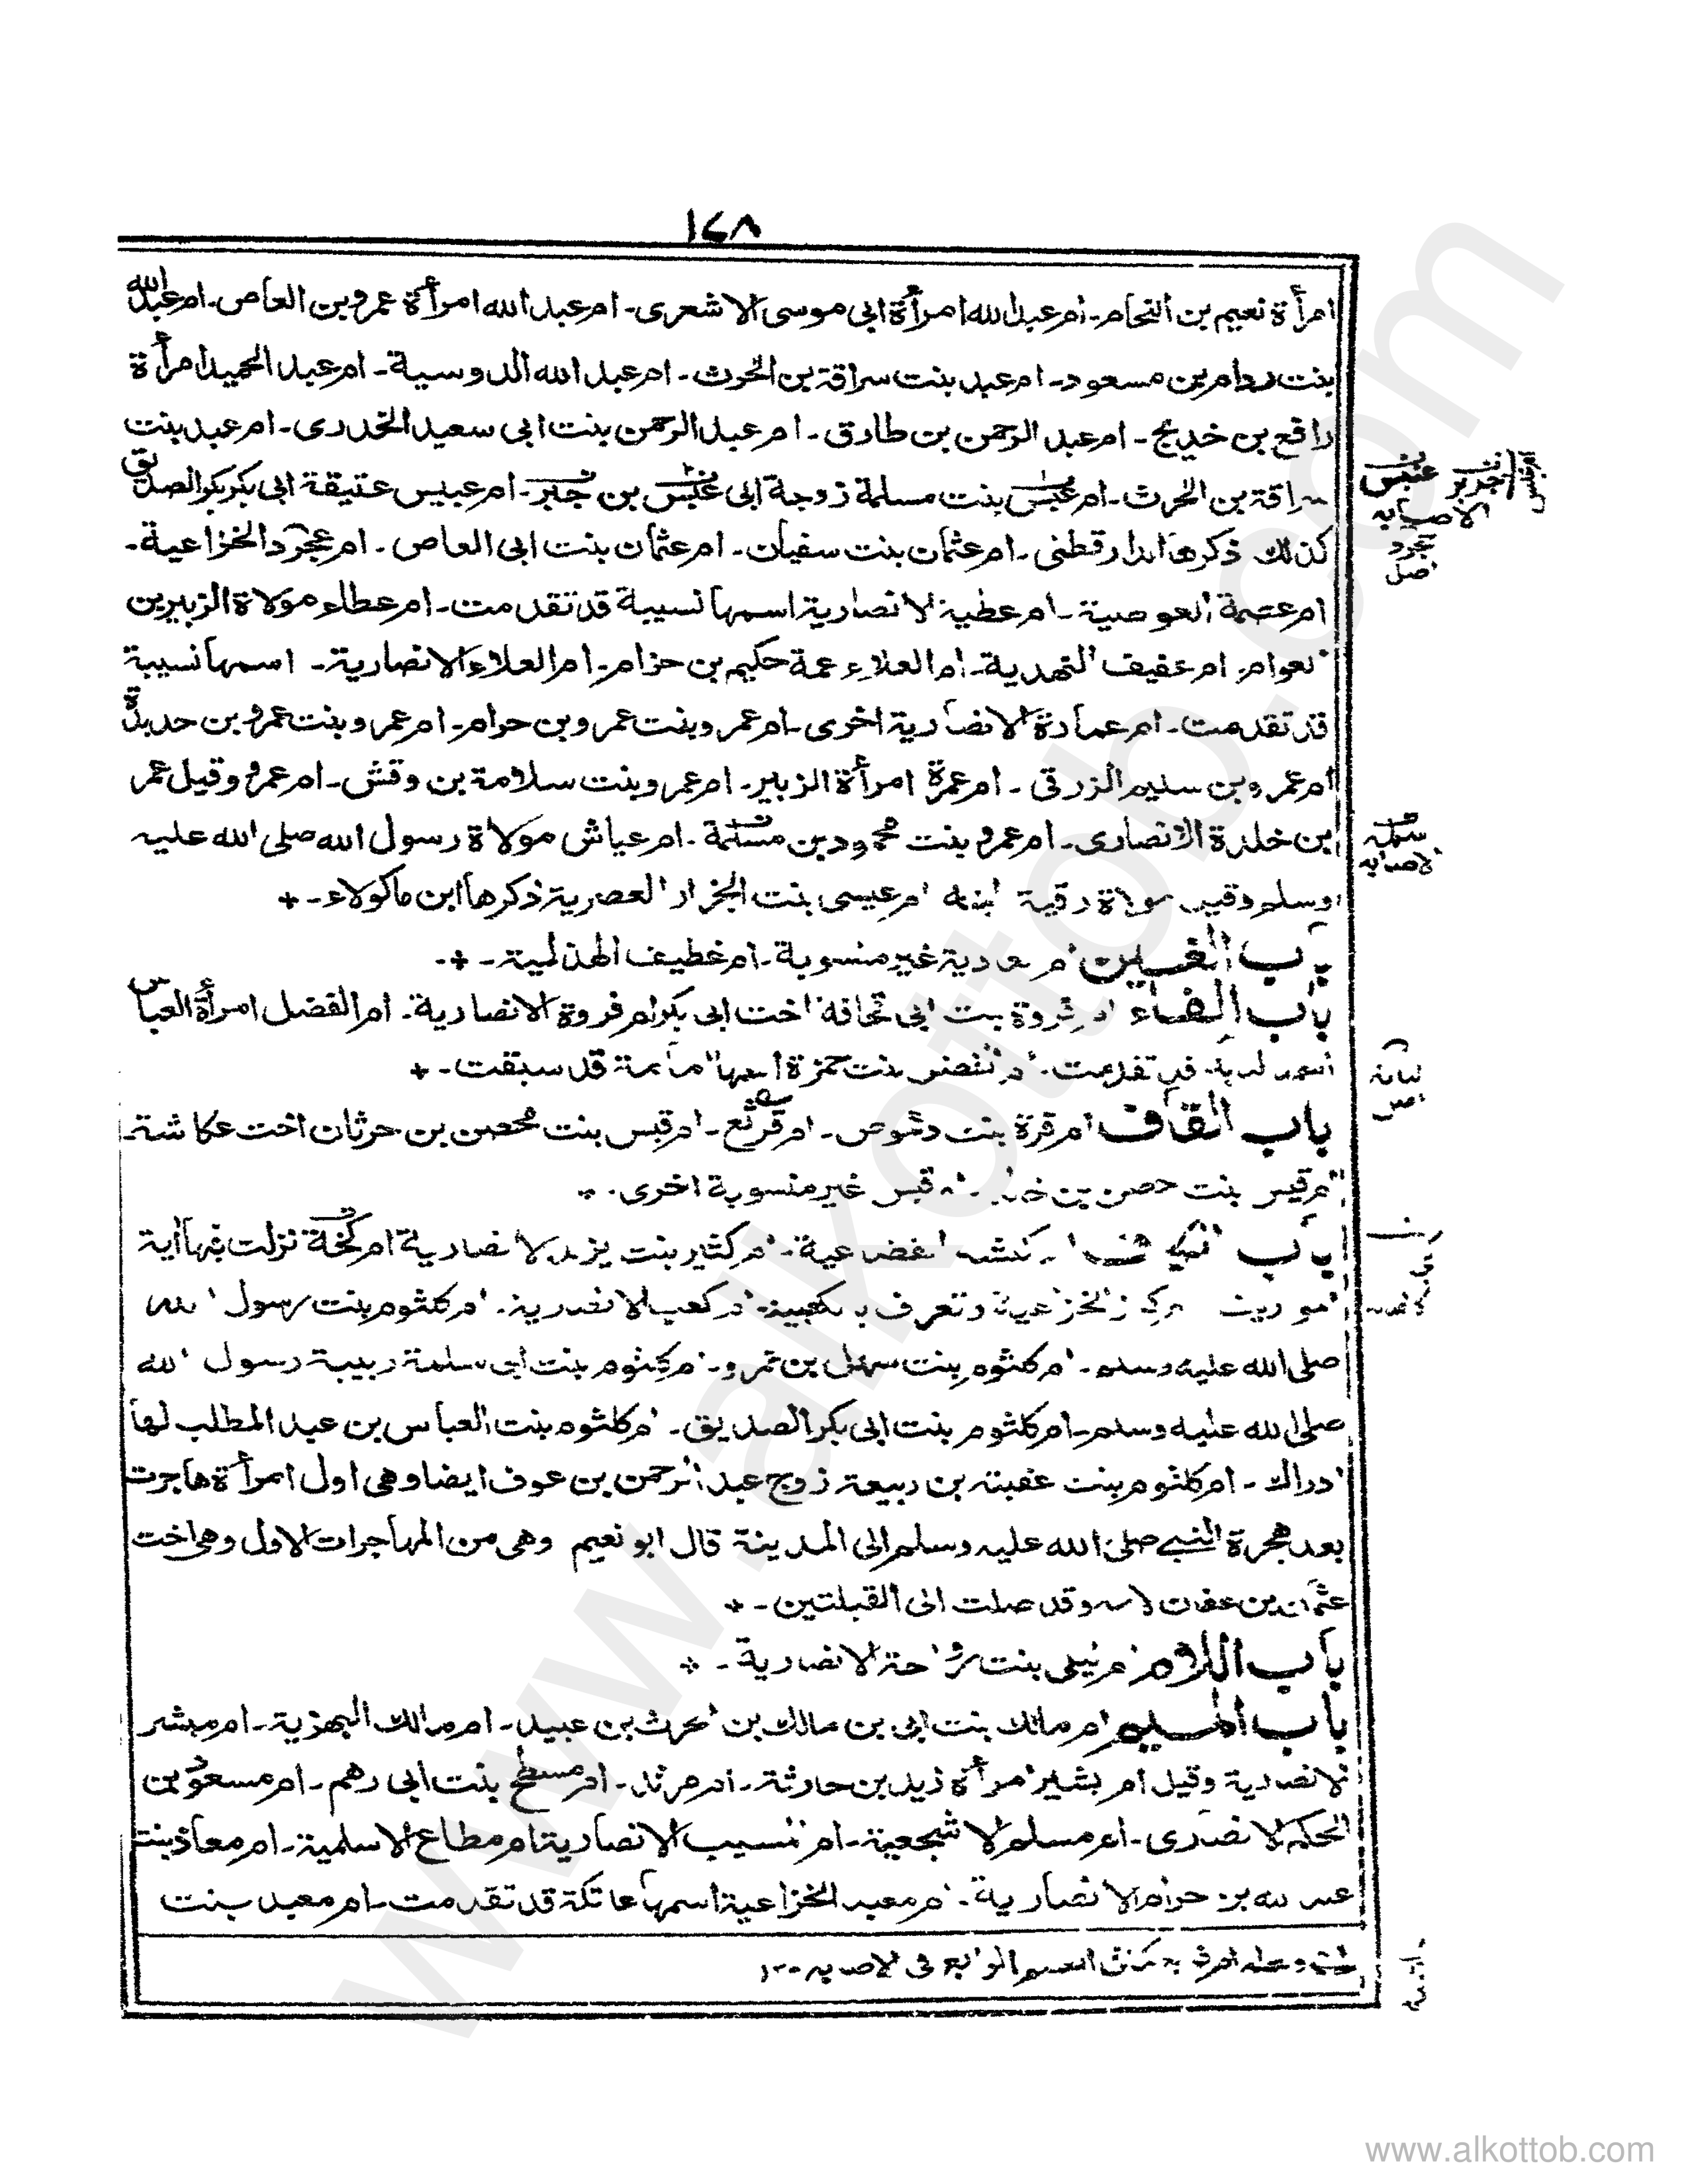 ١٤٨
امرأة نعيم بن النحام ـ ام عبد الله امرأة ابى موسى الاشعرى ـ ام عبد الله امرأة عمرو بن العاص ـ ام عبد الله
بنت بن مسعود ـ ام عبد بنت سراقة بن الحرث ـ ام عبد الله الدوسية ـ ام عبد الحميد امرأة
رافع بن خديج ـ ام عبد الرحمن بن طارق ـ ام عبد الرحمن بنت ابى سعيد الخدرى ـ ام عبد بنت
سراقة بن الحرث ـ ام عبس بنت مسلمة زوجة ابى عبس بن جبر ـ ام عبيس عتيقة ابى بكر الصديق
كذلك ذكرها الدارقطنى ـ ام عثمان بنت سفيان ـ ام عثمان بنت ابى العاص ـ ام عجرد الخزاعية ـ
ام عصمة العوصية ـ ام عطية الانصارية اسمها نسيبة قد تقدمت ـ ام عطاء مولاة الزبير بن
العوام ـ ام عفيف النهدية ـ ام العلاء عمة حكيم بن حزام ـ ام العلاء الانصارية ـ اسمها نسيبة
قد تقدمت ـ ام عمارة الانصارية اخرى ـ ام عمرو بنت عمرو بن حرام ـ ام عمرو بنت عمرو بن حديدة
ام عمرو بن سليم الزرقى ـ ام عمرة امرأة الزبير ـ ام عمرو بنت سلامة بن وقش ـ ام عمرو وقيل عمر
ابن خلدة الانصارى ـ ام عمرو بنت محمود بن مسلمة ـ ام عياش مولاة رسول الله صلى الله عليه
وسلم وقيل مولاة رقية ابنته ام عيسى بنت الجزار العصرية ذكرها ابن ماكولاء ـ *
باب الغين ام غادية غير منسوبة ـ ام غطيف الهذلية ـ * ـ
باب الفاء ام فروة بنت ابى قحافة اخت ابى بكر ام فروة الانصارية ـ ام الفضل امرأة العباس
اسمها لبابة قد تقدمت ـ ام الفضل بنت حمزة اسمها قد سبقت ـ *
باب القاف ام قرة بنت دعموص ـ ام قرثع ـ ام قيس بنت محصن بن حرثان اخت عكاشة ـ
ام قيس بنت حصن بن ـ ام قيس غير منسوبة اخرى ـ *
باب الكاف ام كبشة القضاعية ـ ام كثير بنت يزيد الانصارية ام كحة نزلت فيها آية
المواريث ام كرز الخزاعية وتعرف بالكعبية ـ ام كعب الانصارية ـ ام كلثوم بنت رسول الله
صلى الله عليه وسلم ـ ام كلثوم بنت سهيل بن عمرو ـ ام كلثوم بنت ابى سلمة ربيبة رسول الله
صلى الله عليه وسلم ـ ام كلثوم بنت ابى بكر الصديق ـ ام كلثوم بنت العباس بن عبد المطلب لها
ادراك ـ ام كلثوم بنت عقبة بن ربيعة زوج عبد الرحمن بن عوف ايضا وهى اول امرأة هاجرت
بعد هجرة النبى صلى الله عليه وسلم الى المدينة قال ابو نعيم وهى من المهاجرات الاول وهى اخت
عثمان بن عفان لامه وقد صلت الى القبلتين ـ *
باب اللام ام ليلى بنت رواحة الانصارية ـ *
باب الميم ام مالك بنت ابى بن مالك بن الحرث بن عبيد ـ ام مالك البهزية ـ ام مبشر
الانصارية وقيل ام بشير امرأة زيد بن حارثة ـ ام مرثد ـ ام مسطح بنت ابى رهم ـ ام مسعود بن
الحكم الانصارى ـ ام مسلم الاشجعية ـ ام المسيب الانصارية ام مطاع الاسلمية ـ ام معاذ بنت
عبد الله بن حرام الانصارية ـ ام معبد الخزاعية اسمها عاتكة قد تقدمت ـ ام معبد بنت
عبس
الاصابه
عجرد
اصل
مسلمه
الاصابه
لبابة
اصل
www.alkottob.com
www.alkottob.com